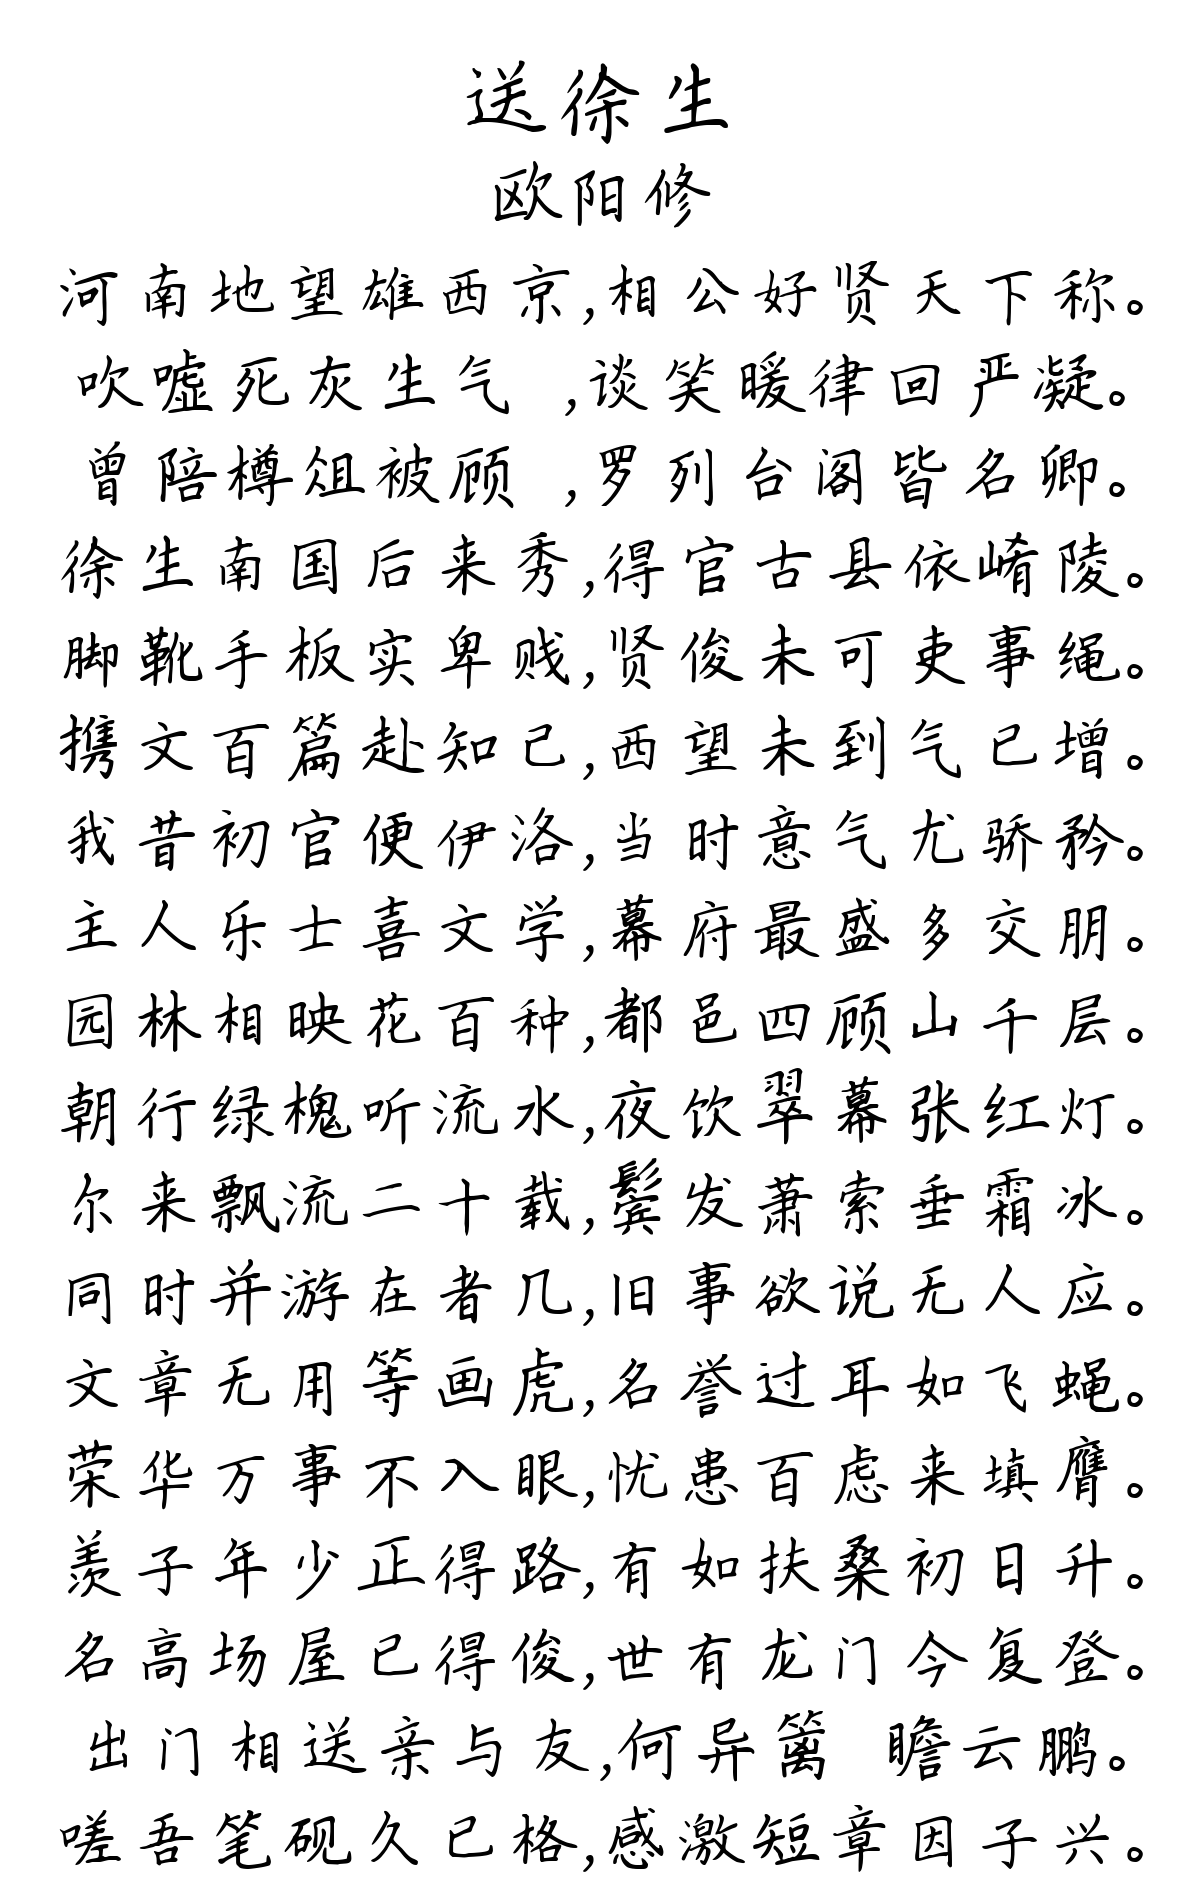 送徐生
欧阳修
河南地望雄西京,相公好贤天下称。
吹嘘死灰生气 ,谈笑暖律回严凝。
曾陪樽俎被顾 ,罗列台阁皆名卿。
徐生南国后来秀,得官古县依崤陵。
脚靴手板实卑贱,贤俊未可吏事绳。
携文百篇赴知己,西望未到气已增。
我昔初官便伊洛,当时意气尤骄矜。
主人乐士喜文学,幕府最盛多交朋。
园林相映花百种,都邑四顾山千层。
朝行绿槐听流水,夜饮翠幕张红灯。
尔来飘流二十载,鬓发萧索垂霜冰。
同时并游在者几,旧事欲说无人应。
文章无用等画虎,名誉过耳如飞蝇。
荣华万事不入眼,忧患百虑来填膺。
羡子年少正得路,有如扶桑初日升。
名高场屋已得俊,世有龙门今复登。
出门相送亲与友,何异篱 瞻云鹏。
嗟吾笔砚久已格,感激短章因子兴。